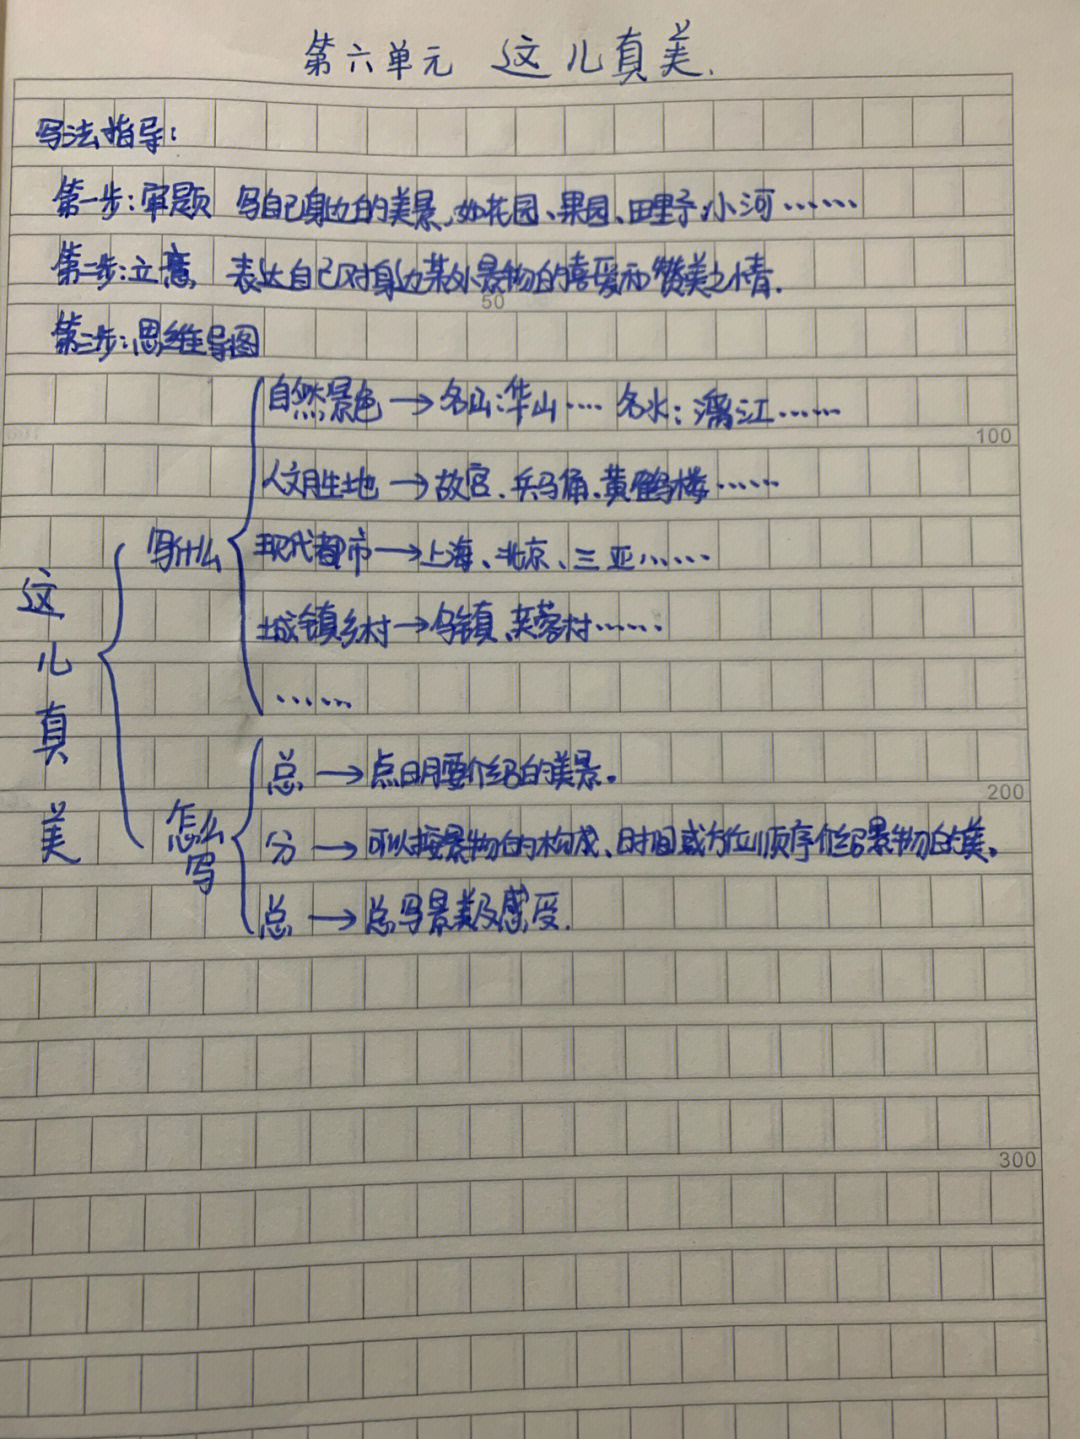 第六单元 这儿真美.
写法指导:
第一步:审题 写自己身边的美景,如花园、果园、田野、小河……
第二步:立意 表达自己对身边某处景物的喜爱和赞美之情.
50
第三步:思维导图
自然景色→名山:华山…. 名水:漓江……
100
人文胜地→故宫、兵马俑、黄鹤楼……
写什么
现代都市→上海、北京、三亚……
城镇乡村→乌镇、芙蓉村……
……
这儿真美
总→点明要介绍的美景。
200
怎么写
分→可以按景物的构成、时间或方位顺序介绍景物的美。
总→总写景美及感受.
300